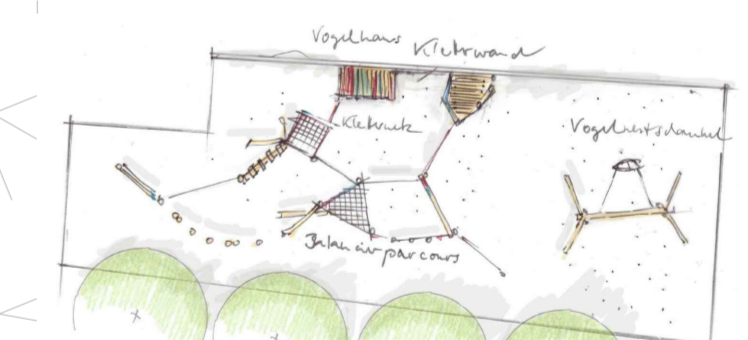 Vogelhaus
Kletterwand
Kletternetz
Vogelnestschaukel
Balancierparcours